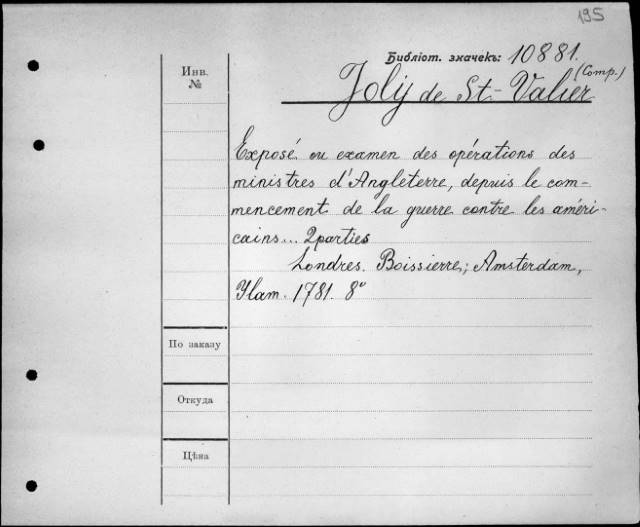 195
Библіот. значекъ: 10881.
Инв.
№
(Comp.)
Jolij de St-Valier
Exposé ou examen des opérations des
ministres d'Angleterre, depuis le com-
mencement de la guerre contre les améri-
cains... 2 parties
Londres. Boissierre; Amsterdam,
1781. 8º
По заказу
Откуда
Цѣна